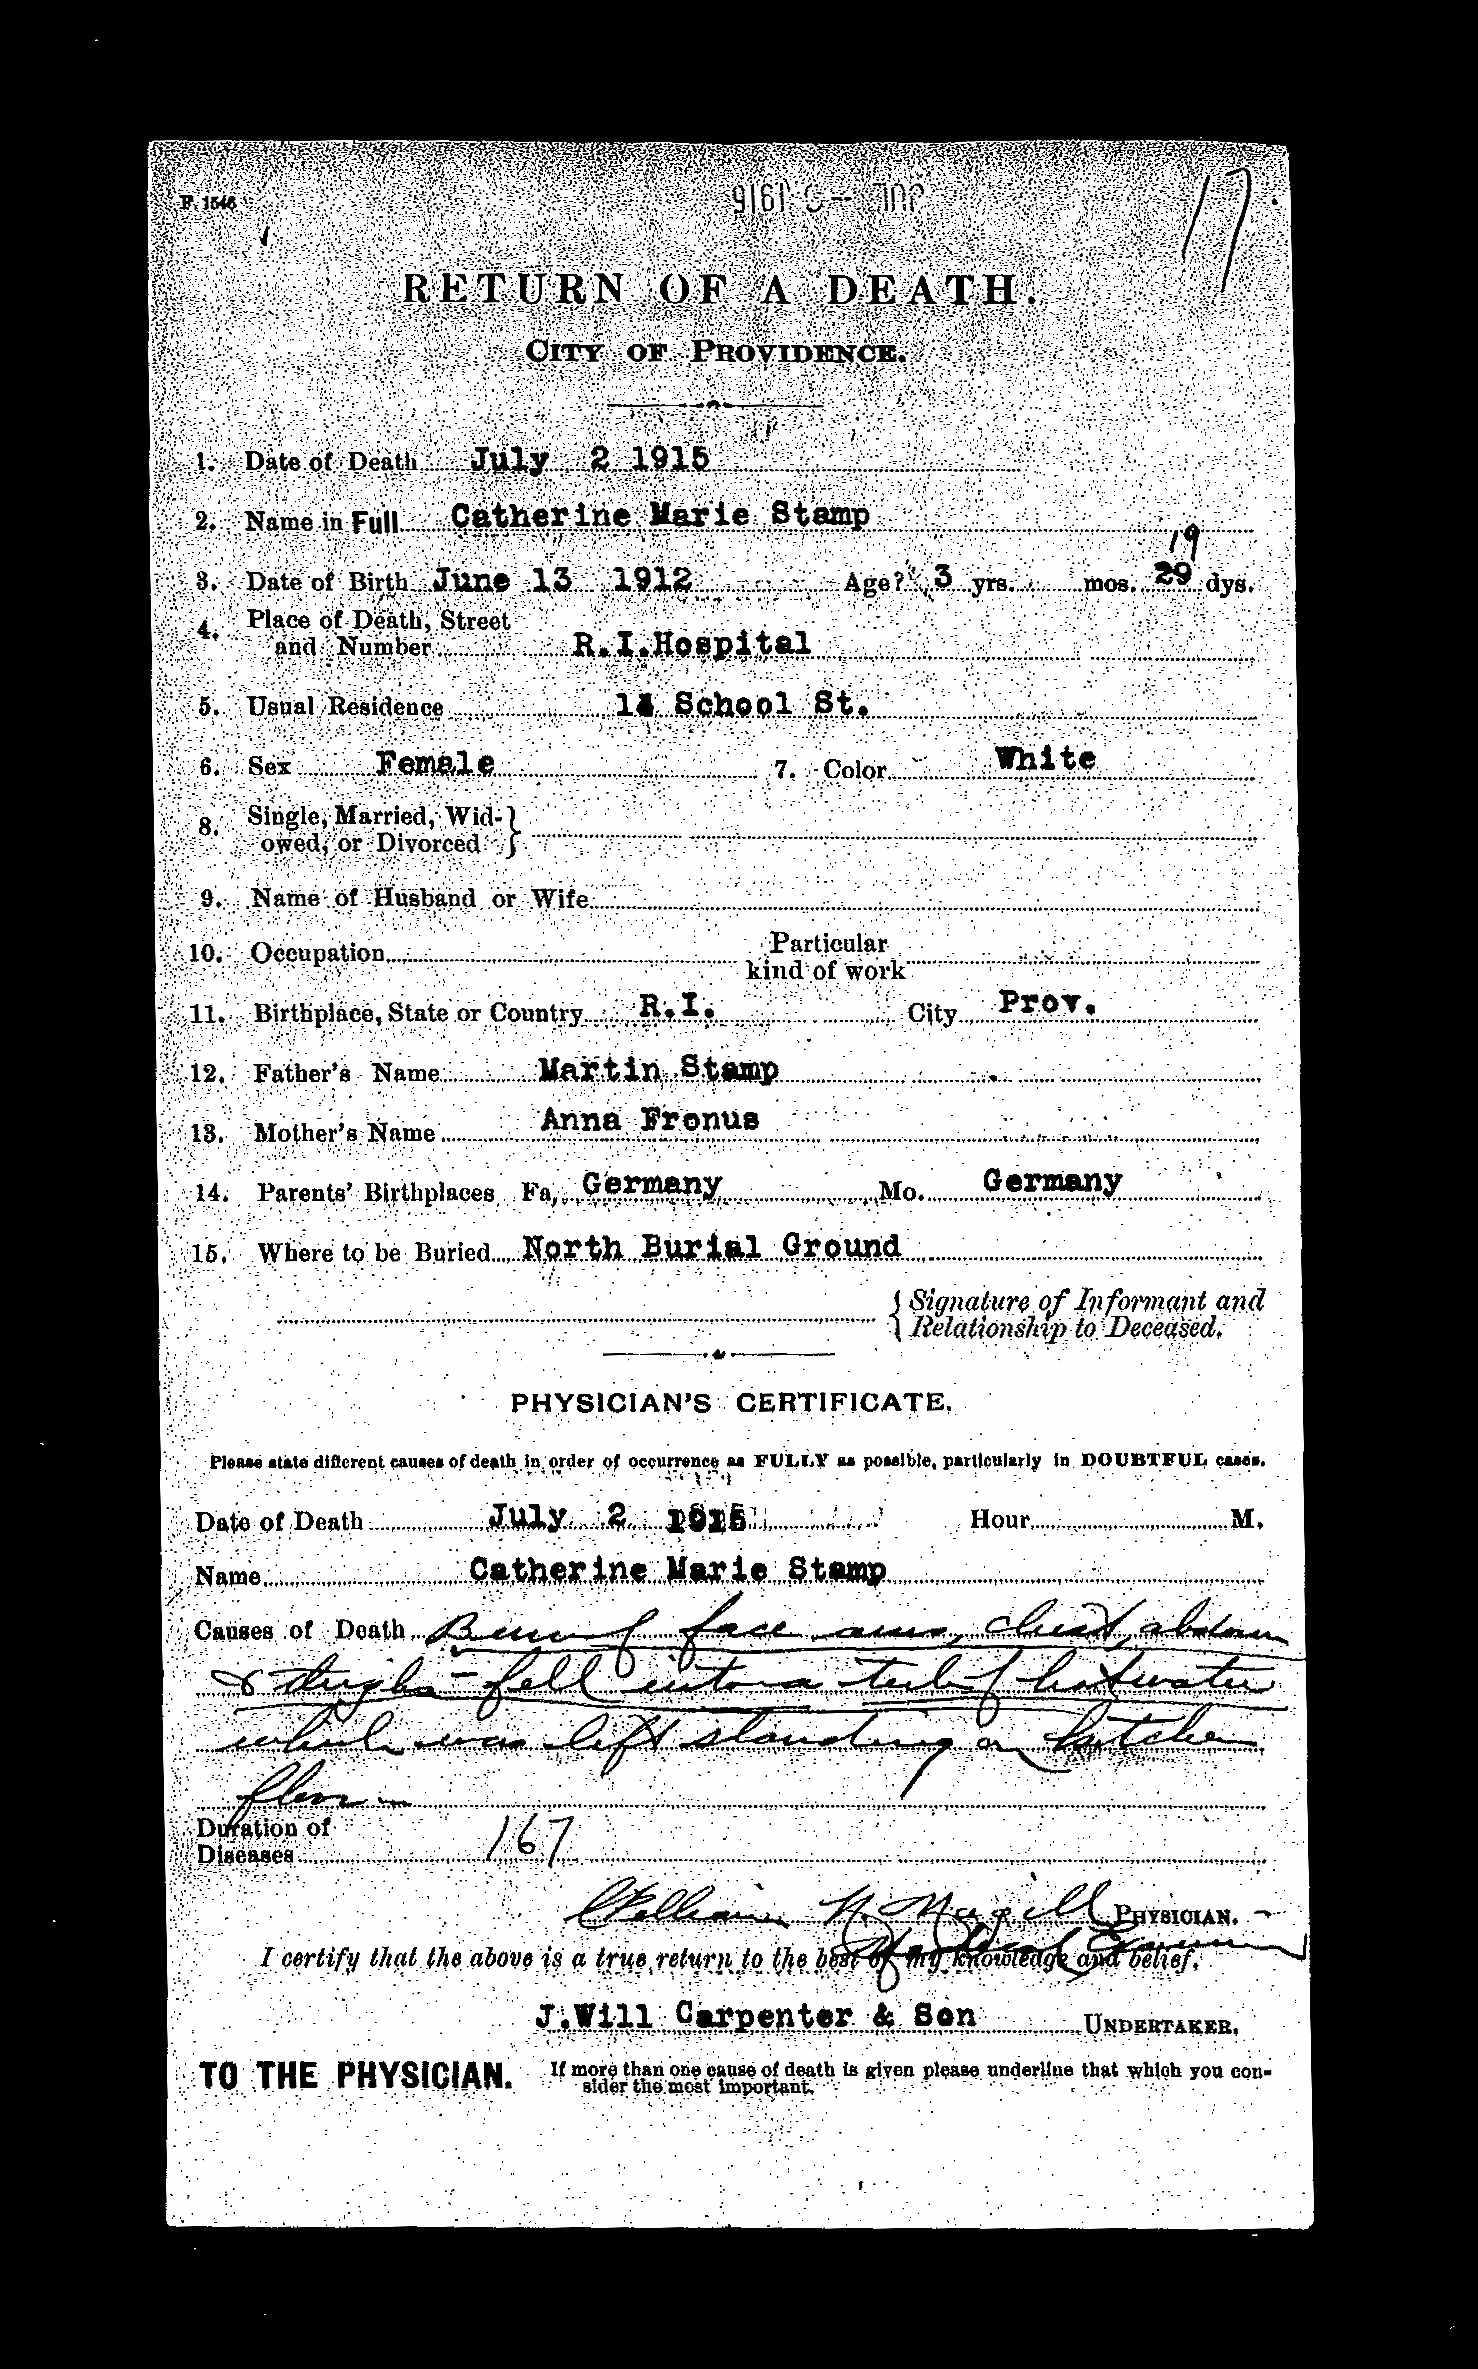 F. 1546
JUL -3 1916
17
RETURN OF A DEATH.
CITY OF PROVIDENCE.
1. Date of Death July 2 1915
2. Name in Full Catherine Marie Stamp
19
3. Date of Birth June 13 1912 Age? 3 yrs. mos. 29 dys.
4. Place of Death, Street
and Number R.I.Hospital
5. Usual Residence School St.
6. Sex Female 7. Color White
8. Single, Married, Wid-
owed, or Divorced
9. Name of Husband or Wife
10. Occupation Particular
kind of work
11. Birthplace, State or Country R.I. City Prov.
12. Father's Name Martin Stamp
13. Mother's Name Anna Fronus
14. Parents' Birthplaces Fa. Germany Mo. Germany
15. Where to be Buried North Burial Ground
Signature of Informant and
Relationship to Deceased.
PHYSICIAN'S CERTIFICATE.
Please state different causes of death in order of occurrence as FULLY as possible, particularly in DOUBTFUL cases.
Date of Death July 2 1915 Hour M.
Name Catherine Marie Stamp
Causes of Death Burn of face arms, chest, abdomen
& thighs - fell into a tub of hot water
which was left standing on kitchen
floor
Duration of
Diseases 167
William H. Magill PHYSICIAN.
Medical Examiner
I certify that the above is a true return to the best of my knowledge and belief.
J.Will Carpenter & Son UNDERTAKER.
TO THE PHYSICIAN. If more than one cause of death is given please underline that which you con-
sider the most important.